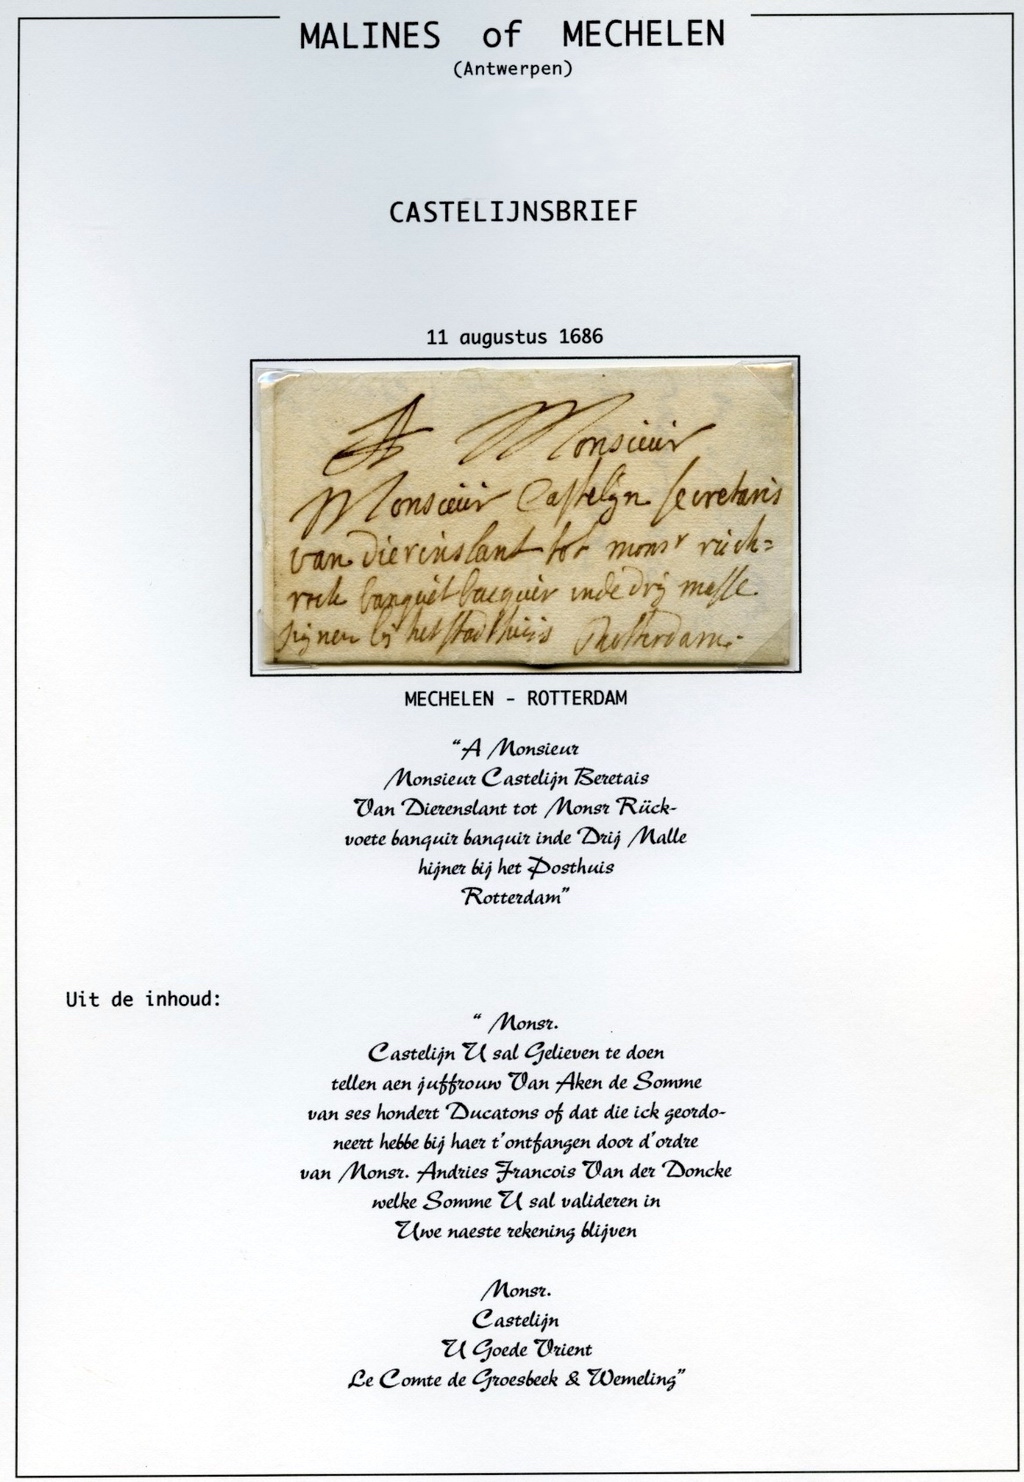 MALINES of MECHELEN
(Antwerpen)
CASTELIJNSBRIEF
11 augustus 1686
A Monsieur
Monsieur Castelijn secretaris
van dierenslant tot monsr
banquier inde drij
bij het stadthuis Rotterdam
MECHELEN - ROTTERDAM
“A Monsieur
Monsieur Castelijn Beretais
Van Dierenslant tot Monsr Rück-
voete banquir banquir inde Drij Malle
hijner bij het Posthuis
Rotterdam”
Uit de inhoud:
“ Monsr.
Castelijn U sal Gelieven te doen
tellen aen juffrouw Van Aken de Somme
van ses hondert Ducatons of dat die ick geordo-
neert hebbe bij haer t'ontfangen door d'ordre
van Monsr. Andries Francois Van der Doncke
welke Somme U sal valideren in
Uwe naeste rekening blijven
Monsr.
Castelijn
U Goede Vrient
Le Comte de Groesbeek & Wemeling”